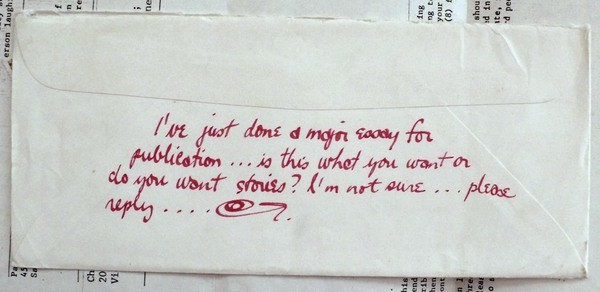 I've just done a major essay for
publication ... is this what you want or
do you want stories? I'm not sure ... please
reply ....